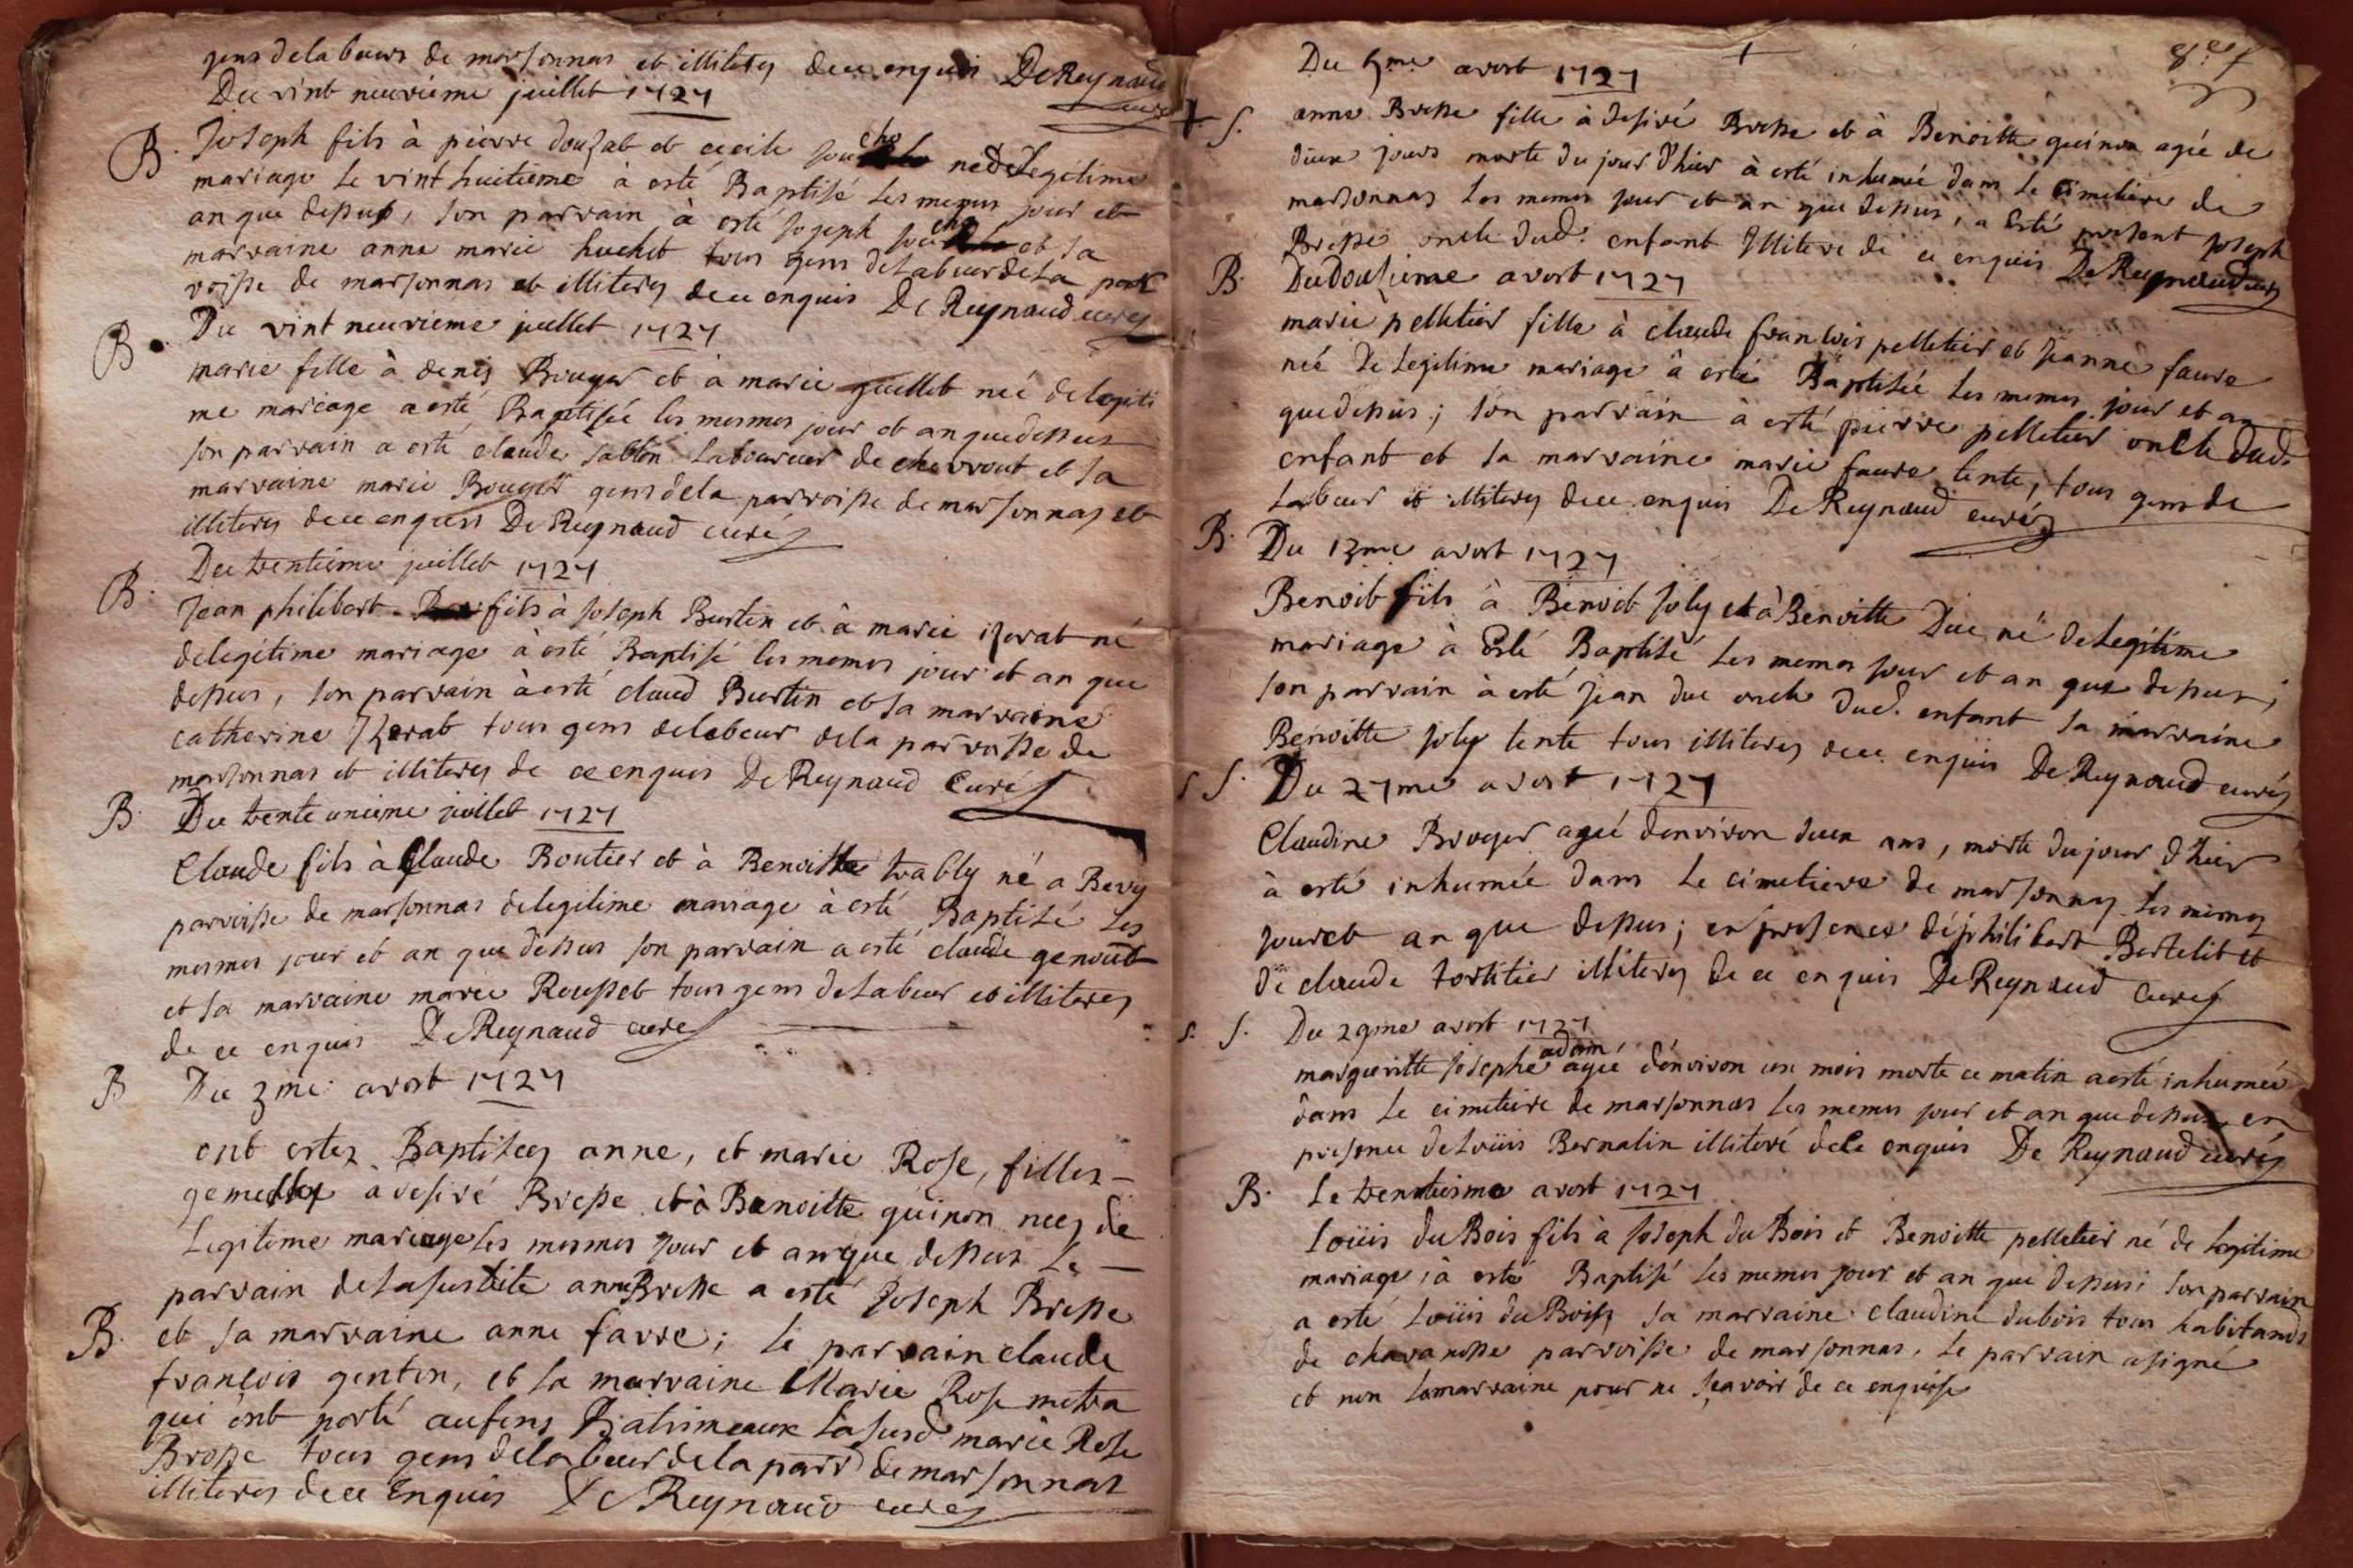 gens de labeurs de marsonnas et illiterez de ce enquis De Reynaud
curé
Du vint neuvieme juillet 1727
B. Joseph fils à pierre douzat et cecile né de legitime
mariage le vint huitieme à esté Baptisé les memes jour et
an que dessus, son parrain à esté joseph et sa
marraine anne marie huchet tous gens de labeur de la par
roisse de marsonnas et illiterez de ce enquis De Reynaud curez
B. Du vint neuvieme juillet 1727
marie fille à denis Brouger et à marie guillet neé de legiti
me mariage a esté Baptisée les mesmes jour et an que dessus
son parrain a esté claude sablon laboureur de chevrout et sa
marraine marie Bouger gens de la parroisse de marsonnas et
illiterez de ce enquis De Reynaud curéz
Du trentieme juillet 1727
B. Jean philibert fils à joseph Burtin et à marie izerat né
de legitime mariage à esté Baptisé les memes jour et an que
dessus, son parrain à esté claud Burtin et sa marraine
catherine Izerat tous gens de labeur de la parroisse de
marsonnas et illiterez de ce enquis De Reynaud Curéz
B. Du trente unieme juillet 1727
Claude fils à Claude Boutier et à Benoitte trably né a Bevy
parroisse de marsonnas de legitime mariage à esté Baptisé les
mesmes jour et an que dessus son parrain a esté claude genout
et sa marraine marie Rousset tous gens de labeur et illiterez
de ce enquis De Reynaud curez
B Du 3me avost 1727
ont estez Baptiseez anne, et marie Rose, filles
gemelles a desiré Bresse et à Benoitte guinon neez de
legitime mariage les mesmes jour et an que dessus le
parrain de la susdite anne Bresse a esté Joseph Bresse
B. et sa marraine anne favre; le parrain claude
françois gentin, et la marraine Marie Rose metra
qui ont porté au fons Batismeaux la susd marie Rose
Bresse tous gens de labeur de la parr de marsonnas
illiterez de ce Enquis De Reynaud curez
Du 5me avost 1727
S. anne Bresse fille à desiré Bresse et à Benoitte guinon agée de
deux jours morte du jour d'hier à esté inhumée dans le cimetiere de
marsonnas les memes jour et an que dessus, a Esté present joseph
Bresse oncle dud. enfant Illitere de ce enquis De Reynaud curez
B. Du douzieme avost 1727
marie pelletier fille à claude francois pelletier et jeanne favre
neé de legitime mariage à esté Baptisée les memes jour et an
que dessus; son parrain à esté pierre pelletier oncle dud.
enfant et sa marraine marie favre tente, tous gens de
labeur et illiterez de ce enquis De Reynaud curéz
B. Du 13me avost 1727
Benoit fils à Benoit joly et à Benoitte Duc né de legitime
mariage à Esté Baptisé les memes jour et an que dessus;
son parrain à esté jean duc oncle dud. enfant sa marraine
Benoitte joly tente tous illiterez de ce enquis De Reynaud curéz
S S. Du 27me avost 1727
Claudine Broyer agée d'environ deux ans, morte du jour d'hier
à esté inhumée dans le cimetiere de marsonnas les memes
jour et an que dessus; en presence de philibert Bertelit et
de claude tortitier illiterez de ce enquis De Reynaud Curez
S. S. Du 29me avost 1727
adam
margueritte josephe agée d'environ un mois morte ce matin a esté inhumée
dans le cimetiere de marsonnas les memes jour et an que dessus en
presence de Loüis Bernalin illiteré de ce enquis De Reynaud curéz
B. Le trentiesme avost 1727
Loüis du Bois fils à joseph du Bois et Benoitte pelletier né de legitime
mariage, à esté Baptisé les memes jour et an que dessus; son parrain
a esté Loüis du Bois, sa marraine claudine dubois tous habitands
de chavanosse parroisse de marsonnas, le parrain a signé
et non la marraine pour ne sçavoir de ce enquise